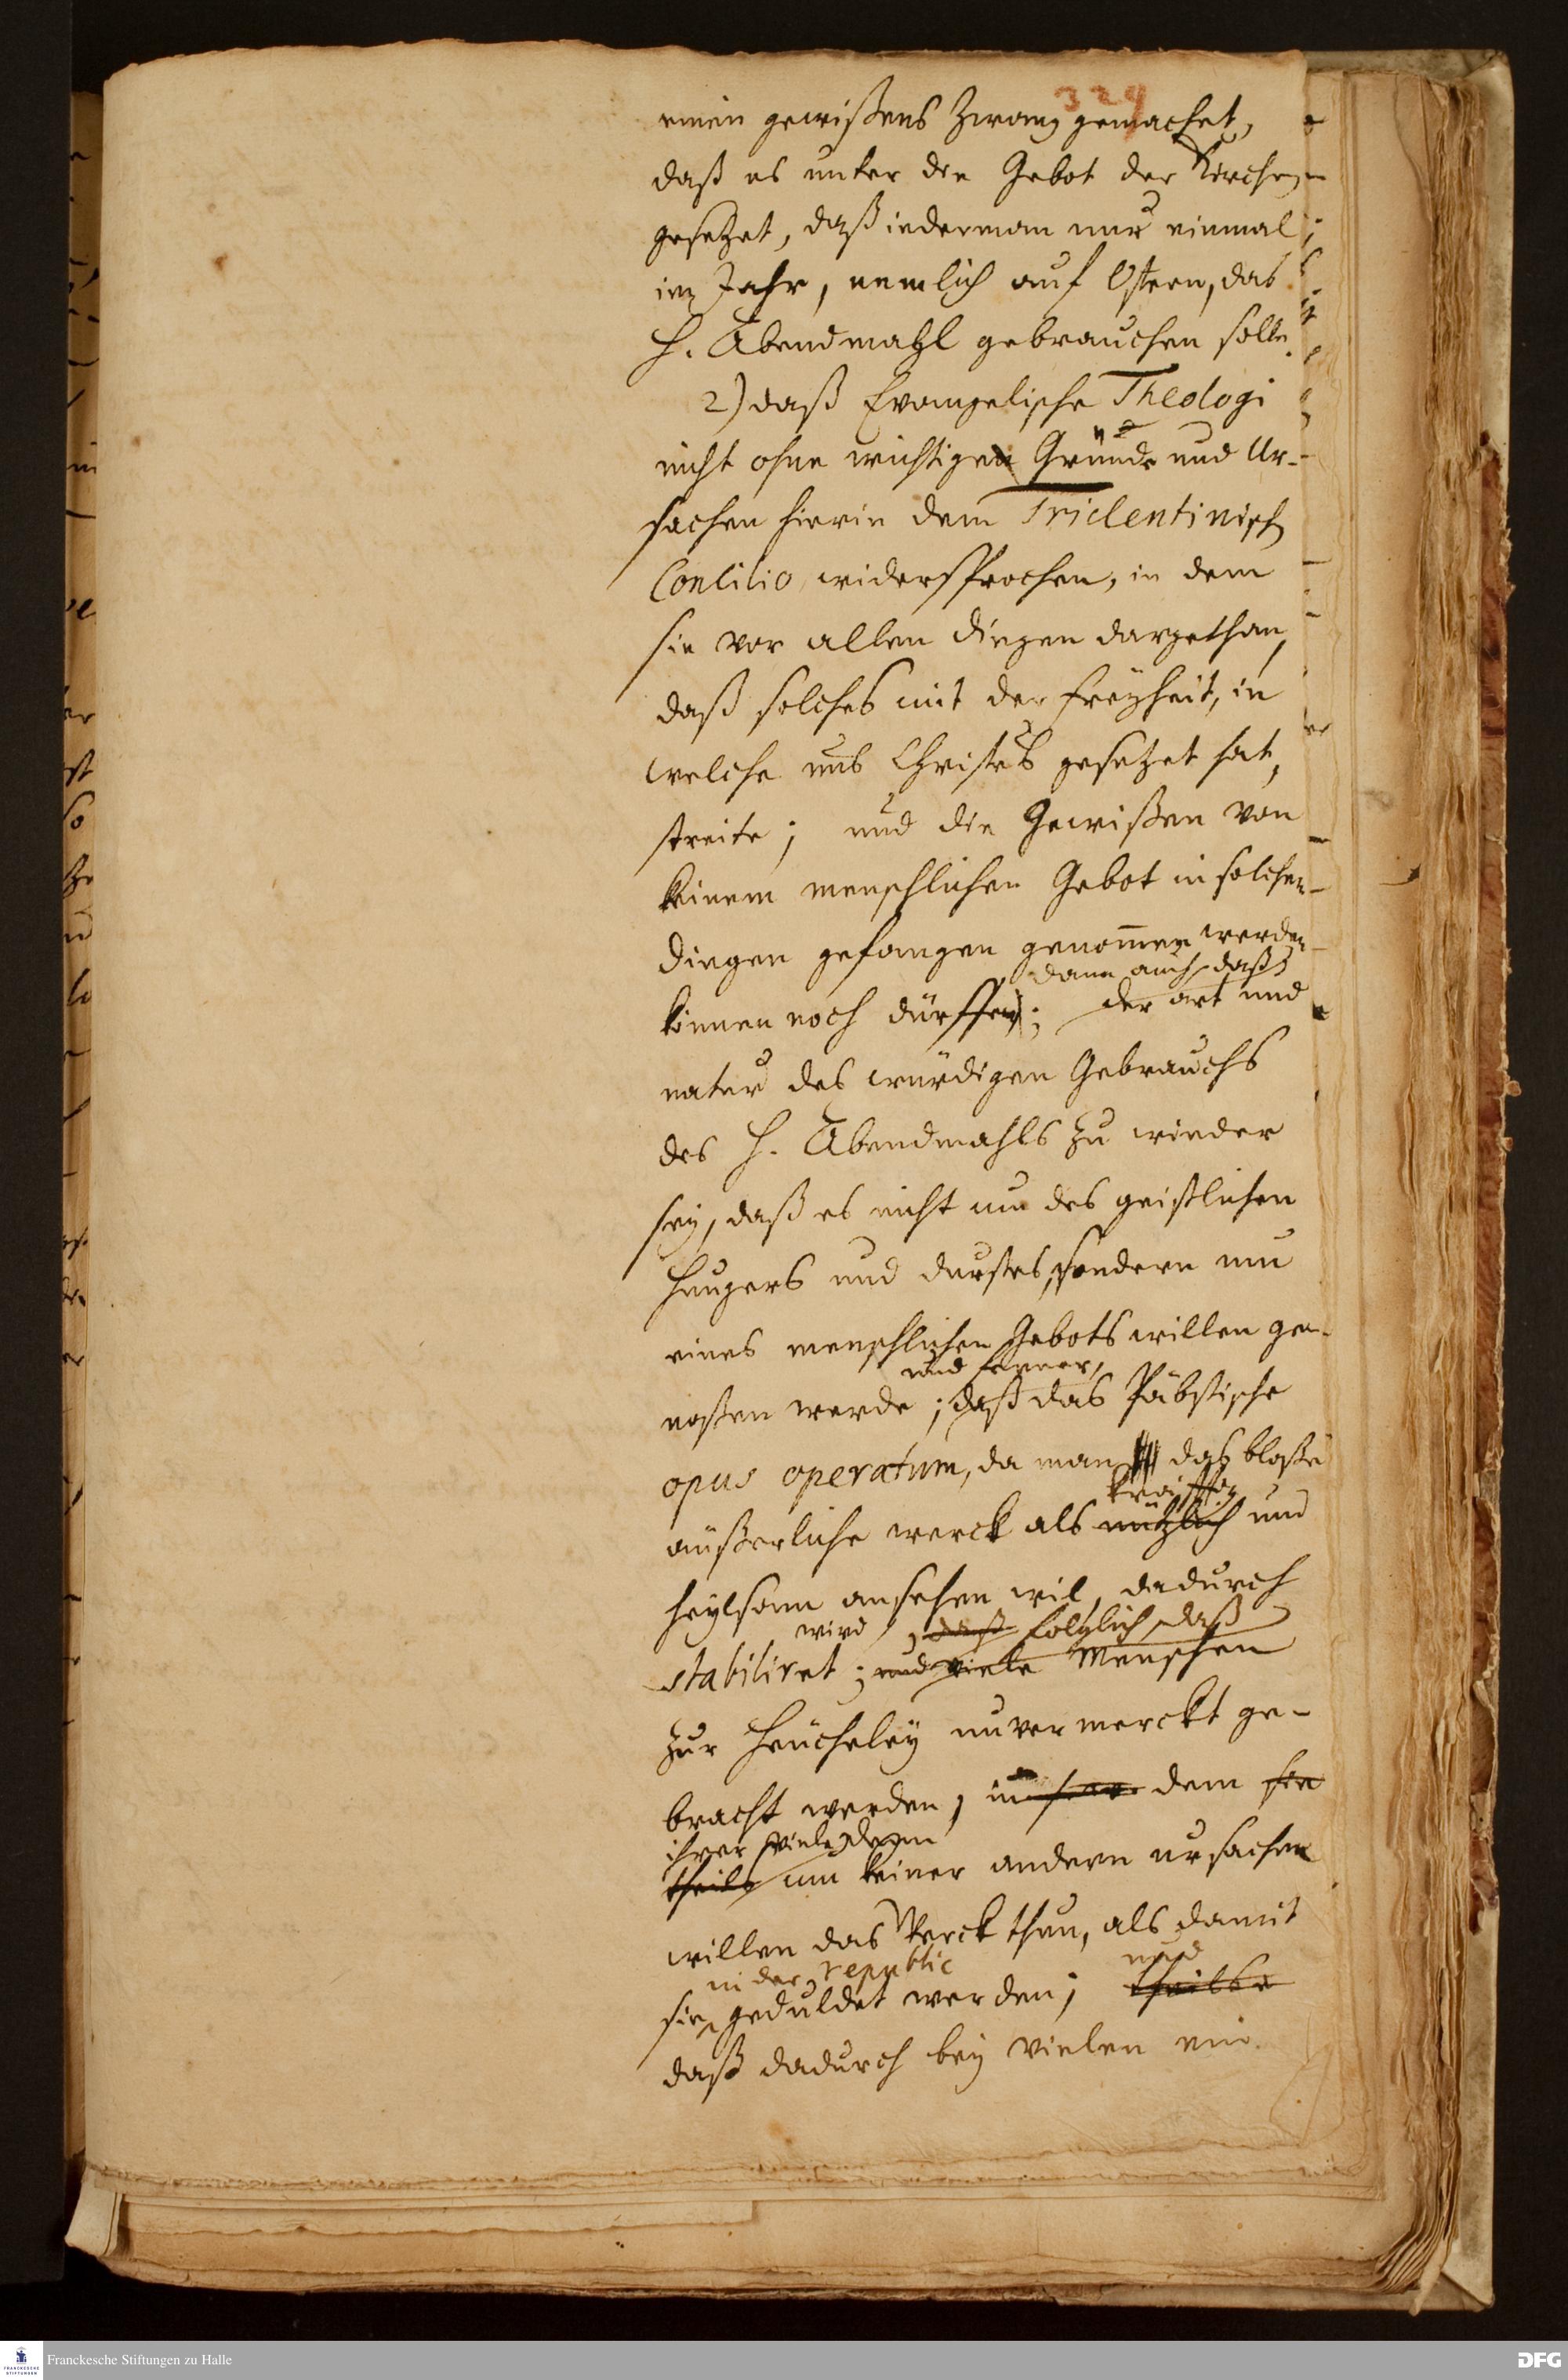 329
einen gewißens Zwang gemachet,
daß es unter die Gebot der Kirchen
gesetzet, daß iederman nur einmal
im Jahr, nemlich auf Ostern, das
H. Abendmahl gebrauchen solle.
2) daß Evangelische Theologi
nicht ohne wichtige Gründe und Ur-
sachen hierin dem Tridentinisch
Concilio widersprochen, in dem
sie vor allen dingen dargethan,
daß solches mit der freyheit, in
welche uns Christus gesetzet hat,
streite; und die Gewißen von
keinem menschlichen Gebot in solchen
dingen gefangen genom̄en werden
dann auch, daß
können noch dürffen; der art und
natur des würdigen Gebrauchs
des H. Abendmahls zu wieder
sey, daß es nicht um des geistlichen
Hungers und durstes, sondern um
eines menschlichen Gebots willen ge-
und ferner,
noßen werde; daß das Päbstische
opus operatum, da man das bloße
kräfftig
äußerliche werck als nützlich und
heylsam ansehen wil, dadurch
wird, daß folglich, daß
stabiliret; und viele Menschen
zur Heucheley unvermerckt ge-
bracht werden, in dem sie
ihrer viele denn
theils um keiner andern ursachen
willen das Werck thun, als damit
in der republic und
sie geduldet werden; theils
daß dadurch bey vielen ein
Franckesche Stiftungen zu Halle
DFG